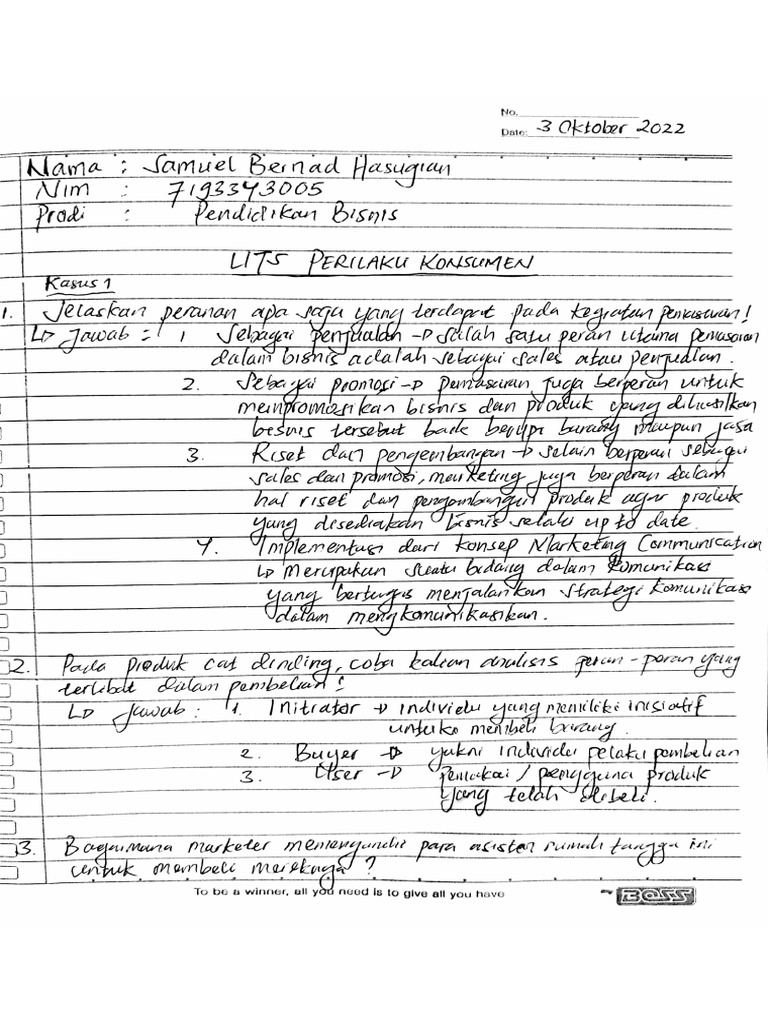 No.
Date: 3 Oktober 2022
Nama : Samuel Bernad Hasugian
Nim : 7193343005
Prodi : Pendidikan Bisnis
LITS PERILAKU KONSUMEN
Kasus 1
1. Jelaskan peranan apa saja yang terdapat pada kegiatan pemasaran!
↳ Jawab : 1 Sebagai penjualan → salah satu peran utama pemasaran
dalam bisnis adalah sebagai sales atau penjualan.
2. Sebagai promosi → pemasaran juga berperan untuk
mempromosikan bisnis dan produk yang dihasilkan
bisnis tersebut baik berupa barang maupun jasa
3. Riset dan pengembangan → selain berperan sebagai
sales dan promosi, marketing juga berperan dalam
hal riset dan pengembangan produk agar produk
yang disediakan bisnis selalu up to date.
4. Implementasi dari konsep Marketing Communication
↳ Merupakan suatu bidang dalam komunikasi
yang bertugas menjalankan strategi komunikasi
dalam mengkomunikasikan.
2. Pada produk cat dinding, coba kalian analisis peran-peran yang
terlibat dalam pembelian!
↳ Jawab : 1. Initrator → individu yang memiliki inisiatif
untuk membeli barang.
2. Buyer → yakni individu pelaku pembelian
3. User → pemakai / pengguna produk
yang telah dibeli.
3. Bagaimana marketer memengaruhi para asisten rumah tangga ini
untuk membeli mereknya?
To be a winner, all you need is to give all you have
BOSS